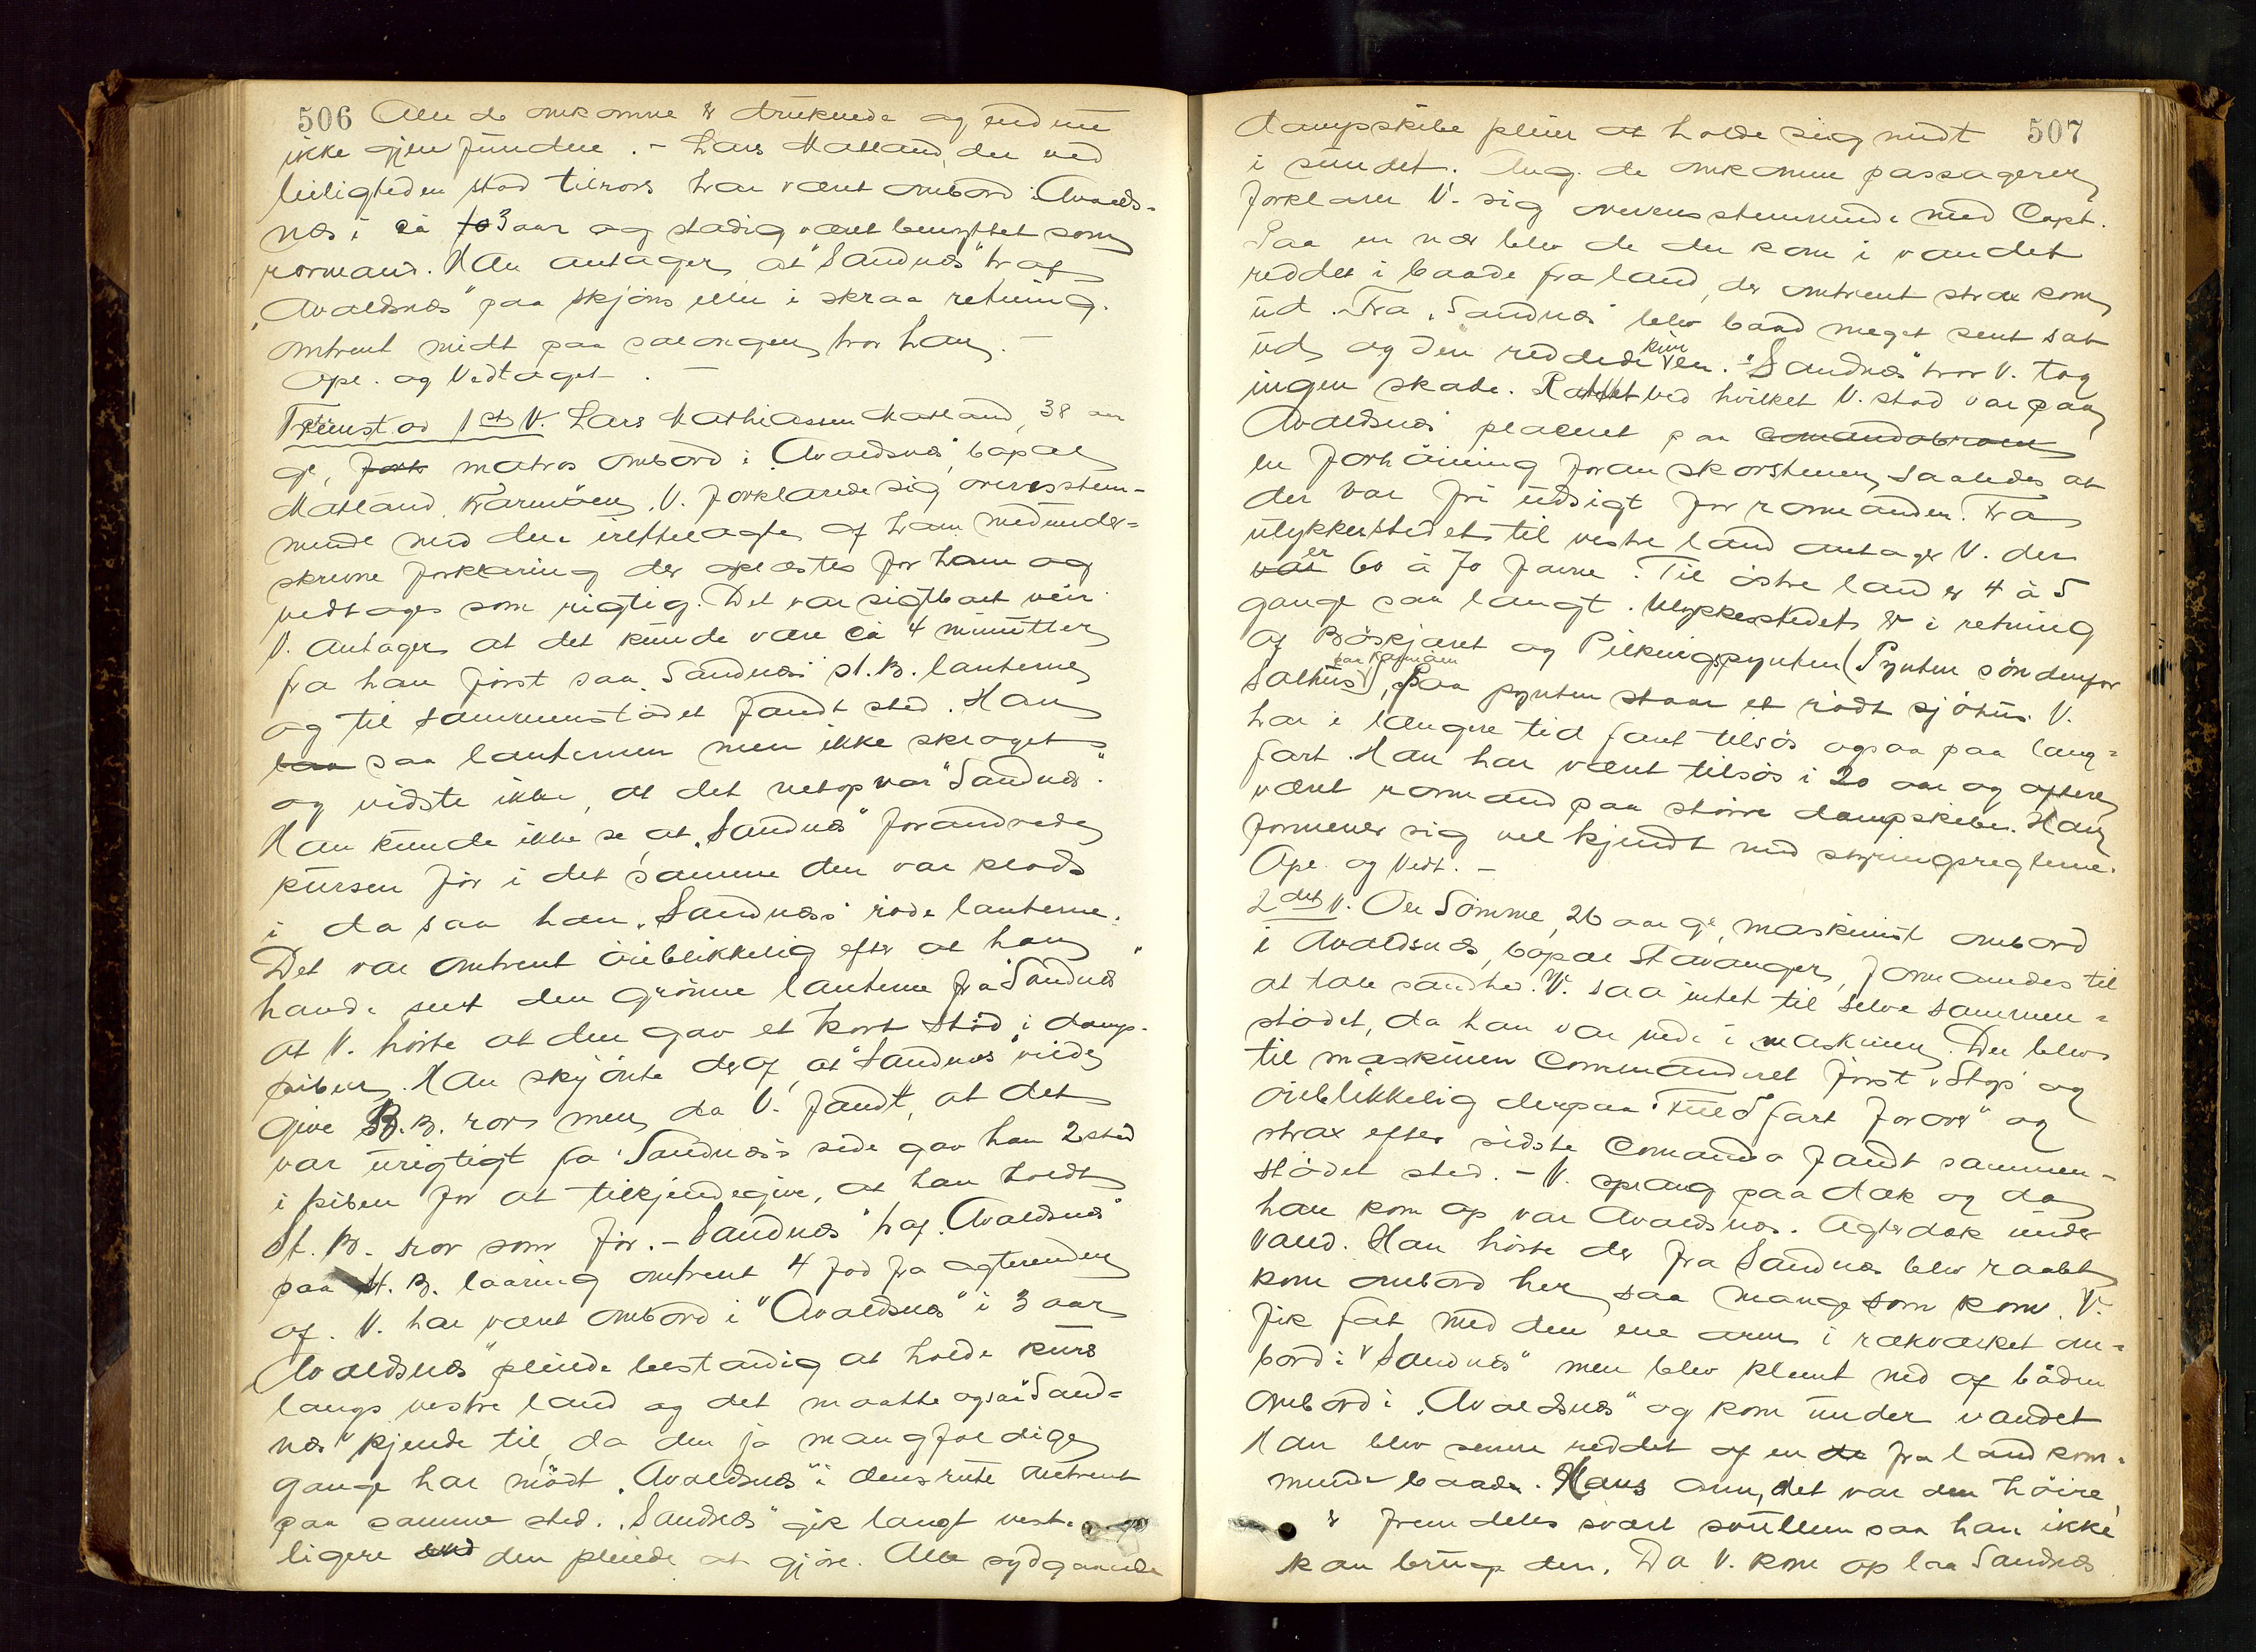 506 Alle de omkomne er druknede og endnu
ikke gjenfundne. - Lars Matland, der ved
leiligheden stod tilrors har været ombord i Avalds-
næs i ca 3 aar og stadig været benyttet som
rormand. Han antager at "Sandnæs" traf
"Avaldsnæs" paa skjøns eller i skraa retning.
omtrent midt paa salongen tror han. -
Opl. og Vedtaget. -
Fremst. as 1ste V. Lars Mathiassen Matland, 38 aar
gl, fork matros ombord i "Avaldsnæs", bopæl
Matland, Karmøen. V. forklarede sig overensstem-
mende med den irettelagte af ham medunder-
skrevne forklaring der oplæstes for ham og
vedtages som rigtig. Det var sigtbart veir.
V. antager at det kunde være ca 4 minutter
fra han først saa "Sandnæs" st.B. lanterne
og til sammenstødet fandt sted. Han
saa lanternen men ikke skroget
og vidste ikke, at det netop var "Sandnæs".
Han kunde ikke se, at "Sandnæs" forandrede
kursen før i det samme den var klods
i da saa han "Sandnæs" røde lanterne.
Det var omtrent øieblikkelig efter at han
havde seet den grønne lanterne fra "Sandnæs"
at V. hørte at den gav et kort stød i damp-
piben. Han skjønte deraf, at "Sandnæs" vilde
give B.B. ror men da V. fandt, at det
var urigtigt fra "Sandnæs's side gav han 2 stød
i piben for at tilkjendegive, at han holdt
St. B. ror som før. - "Sandnæs" traf "Avaldsnæs"
paa St. B. laaring omtrent 4 fod fra agterenden
af. V. har været ombord i "Avaldsnæs" i 3 aar
"Avaldsnæs" pleiede bestandig at holde kurs
langs vestre land og det maatte ogsaa "Sand-
næs" kjende til, da den jo mangfoldige
gange har mødt "Avaldsnæs" i dens rute omtrent
paa samme sted. "Sandnæs" gik langt vest-
ligere end den pleiede at gjøre. Alle sydgaaende
dampskibe pleier at holde sig midt 507
i sundet. Ang. de omkomne passagerer
forklarer V. sig overensstemmende med Capt.
Paa en nær blev de der kom i vandet
reddet i baade fra land, der omtrent strax kom
ud. Fra "Sandnæs" blev baad meget sent sat
ud og den reddede kun en. "Sandnæs" tror V. tog
ingen skade. Rattet ved hvilket V. stod var paa
Avaldsnæs placeret paa comandobroen
en forhøining foran skorstenen saaledes at
der var fri udsigt for rormanden. Fra
ulykkesstedet til vestre land antager V. der
var er 60 à 70 favne. Til østre land er 4 à 5
gange saa langt. Ulykkesstedet er i retning
af Bøskjæret og Pilkningspynten (Pynten søndenfor
Salhus paa Karmøen), paa pynten staar et rødt sjøhus. V.
har i længere tid faret tilsøs ogsaa paa lang-
fart. Han har været tilsøs i 20 aar og oftere
været rormand paa større dampskibe. Han
formener sig vel kjendt med styringsreglerne.
Opl. og Vedt. -
2det V. Ole Sømme, 26 aar gl, maskinist ombord
i Avaldsnæs, bopæl Stavanger, formanedes til
at tale sandhed. V. saa intet til selve sammen-
stødet, da han var nede i maskinen. Der blev
til maskinen Commanderet først "Stop" og
øieblikkelig derpaa "Fuld fart forover" og
strax efter sidste Comando fandt sammen-
stødet sted. - V. sprang paa dæk og da
han kom op var Avaldsnæs. Agterdæk under
vand. Han hørte der fra Sandnæs blev raabt
kom ombord her saa mange som kom. V.
fik fat med den ene arm i rækværket om-
bord i "Sandnæs" men blev klemt ned af båden
ombord i "Avaldsnæs" og kom under vandet
Han blev senere reddet af en de fra land kom-
mende baade. Hans arm, det var den høire,
er fremdeles svært svullen saa han ikke
kan bruge den. Da V. kom op laa Sandnæs